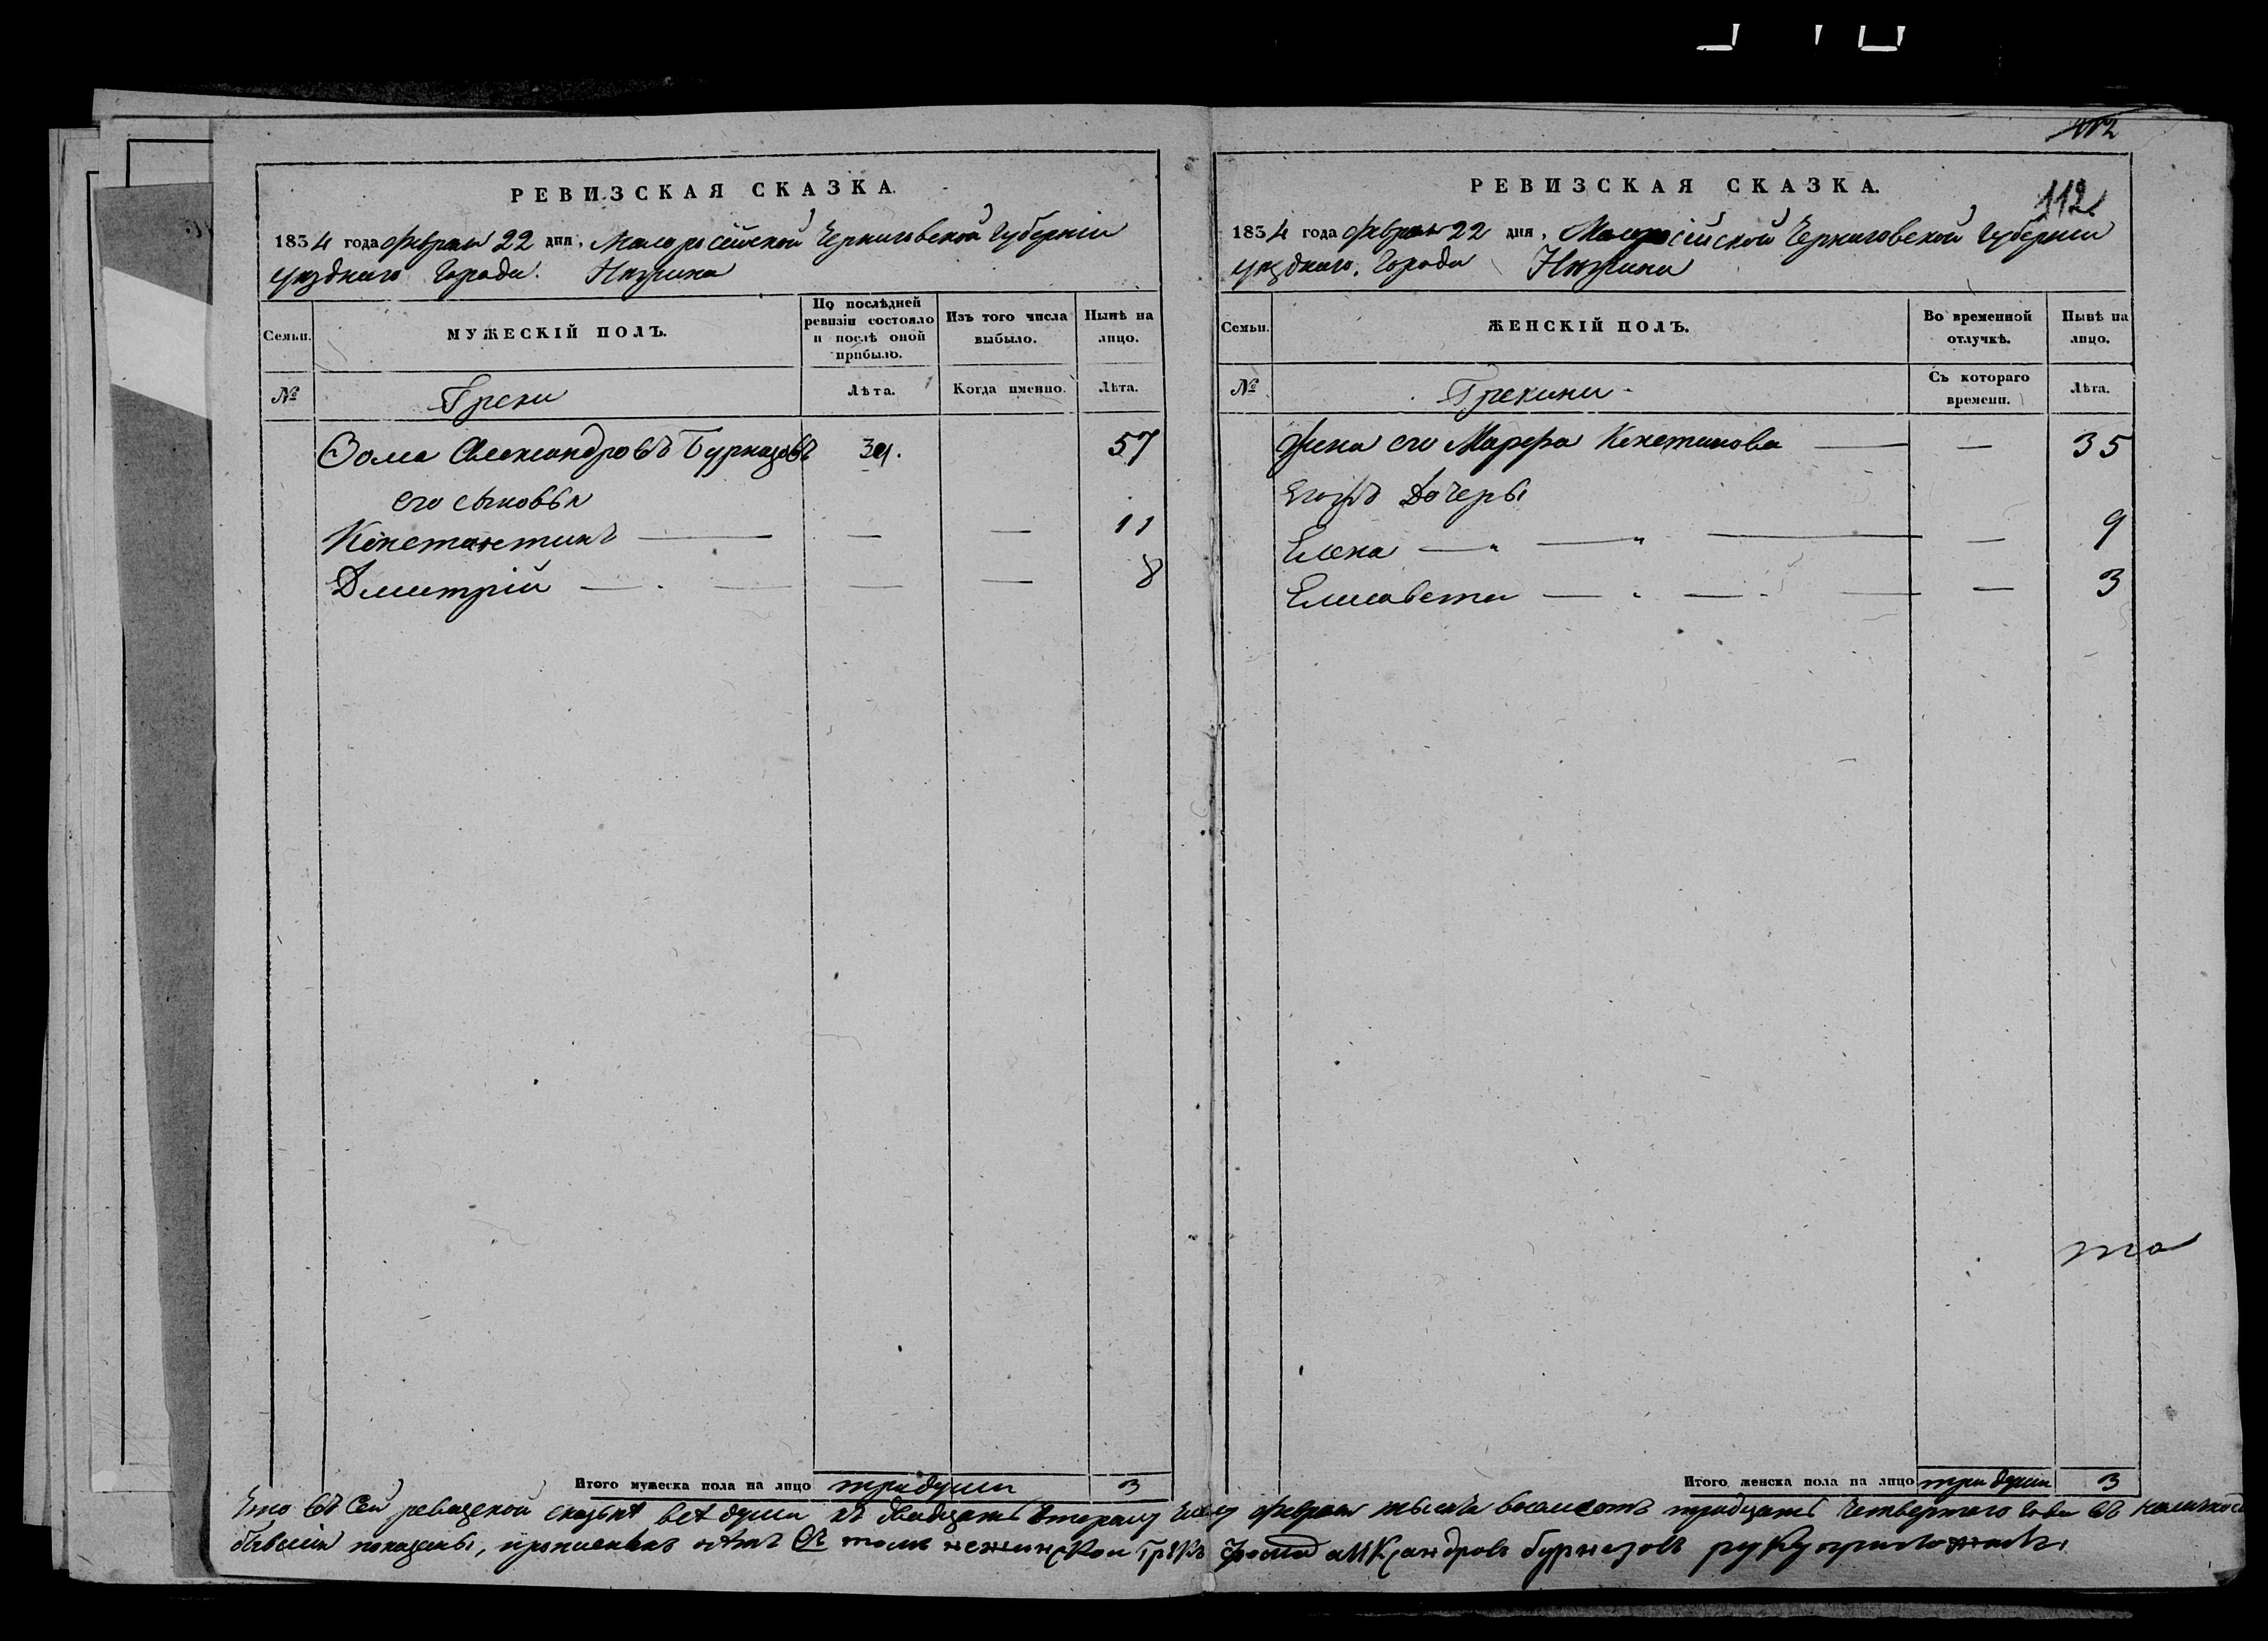 РЕВИЗСКАЯ СКАЗКА.
1834 года февраля 22 дня, Малоросейской Черниговской Губерніи
уѣзднаго города Нѣжина
Семьи. МУЖЕСКІЙ ПОЛЪ. По послѣдней ревизіи состояло и послѣ оной прибыло. Изъ того числа выбыло. Нынѣ на лицо.
№ Греки Лѣта. Когда именно. Лѣта.
Ѳома Александровъ Бурназовъ 39. 57
его сыновья
Константинъ — — — 11
Дмитрій — — — — 8
Итого мужеска пола на лицо три души 3
412
112
РЕВИЗСКАЯ СКАЗКА.
1834 года февраля 22 дня, Малоросійской Черниговской Губерніи
уѣзднаго города Нѣжина
Семьи. ЖЕНСКІЙ ПОЛЪ. Во временной отлучкѣ. Нынѣ на лицо.
№ Грекини Съ котораго времени. Лѣта.
Жена его Марфа Константинова — — 35
Дочеры
Елена — „ — „ — — 9
Елисавета — — — — 3
та
Итого женска пола на лицо три души 3
Что въ сей ревизской сказкѣ всѣ души къ двадцать второму числу февраля тысяча восемсотъ тридцать четвертаго года въ
бывшія показаны, въ томъ неженской грекъ фома александровъ бурназовъ руку приложилъ